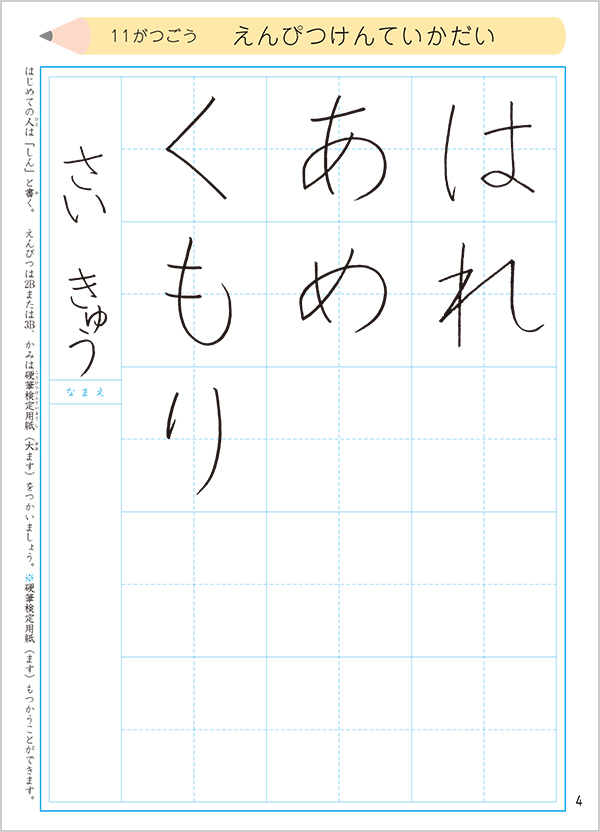 11がつごう えんぴつけんていかだい
はれ
あめ
くもり
さい きゅう
なまえ
はじめての人は「しん」と書く。 えんぴつは2Bまたは3B、かみは硬筆検定用紙（大ます）をつかいましょう。※硬筆検定用紙（ます）もつかうことができます。
4